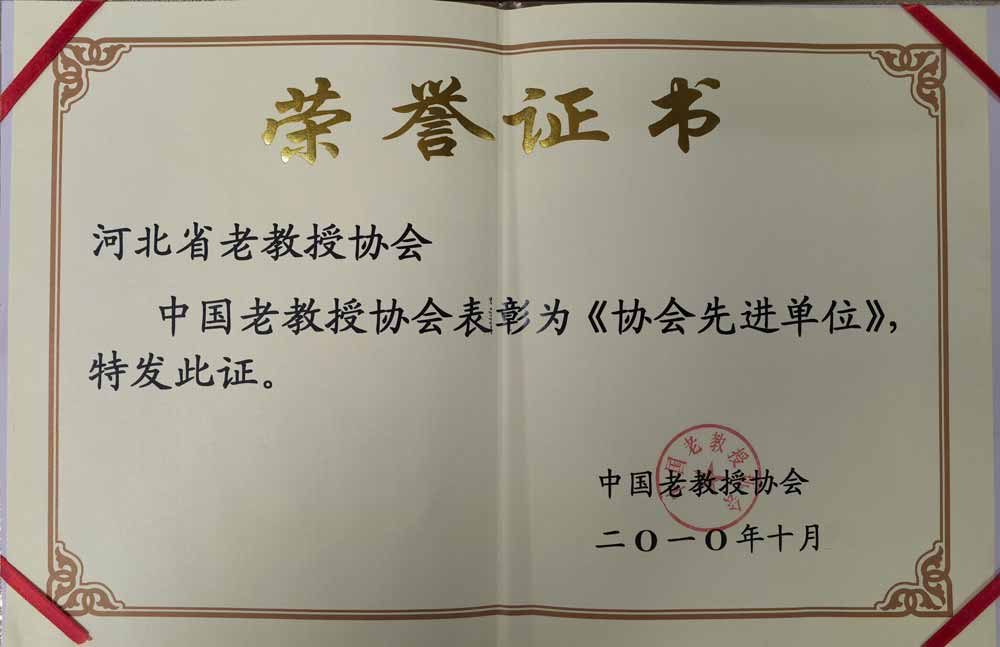 荣誉证书
河北省老教授协会
中国老教授协会表彰为《协会先进单位》，
特发此证。
中国老教授协会
中国老教授协会
二〇一〇年十月